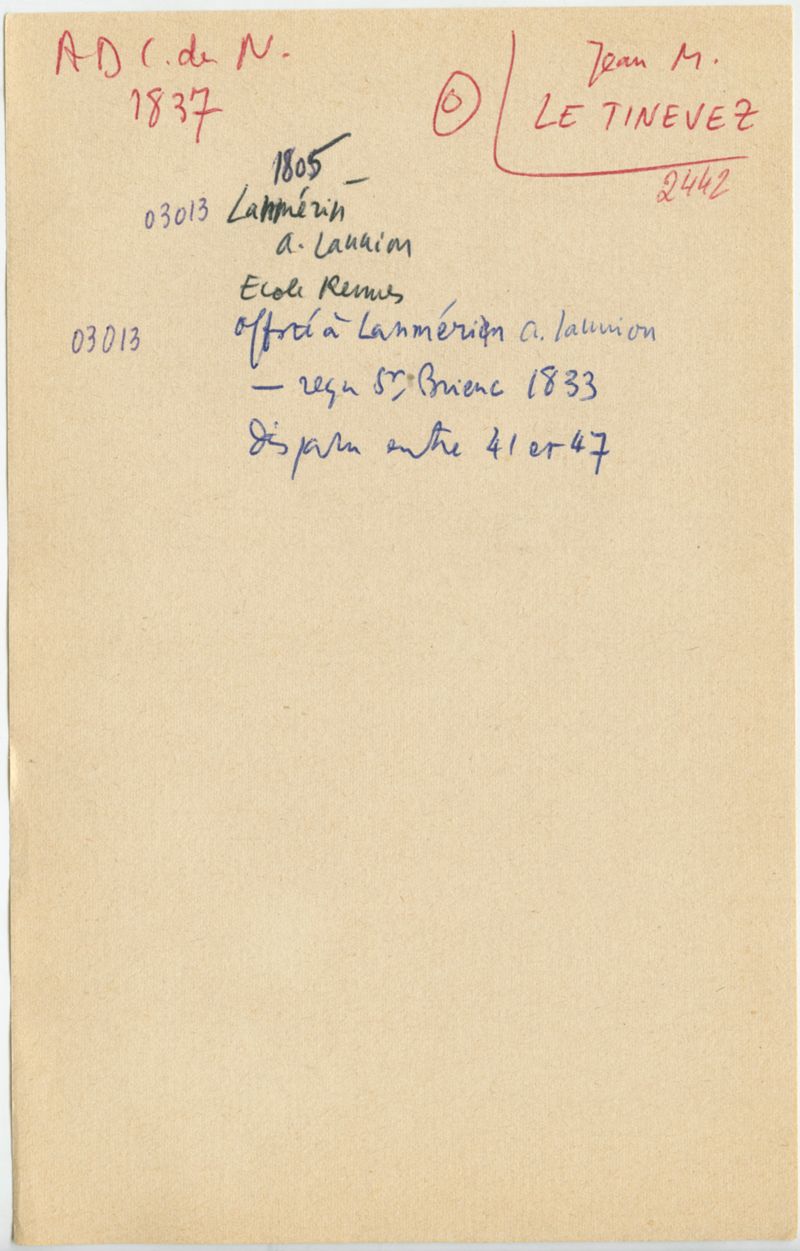 A D C. du N.
1837
O
Jean M.
LE TINEVEZ
2442
1805 –
03013 Lanmérin
a. Lannion
Ecole Rennes
03013 offsté à Lanmérin a. Lannion
— reçu St, Brieuc 1833
Disparu entre 41 et 47